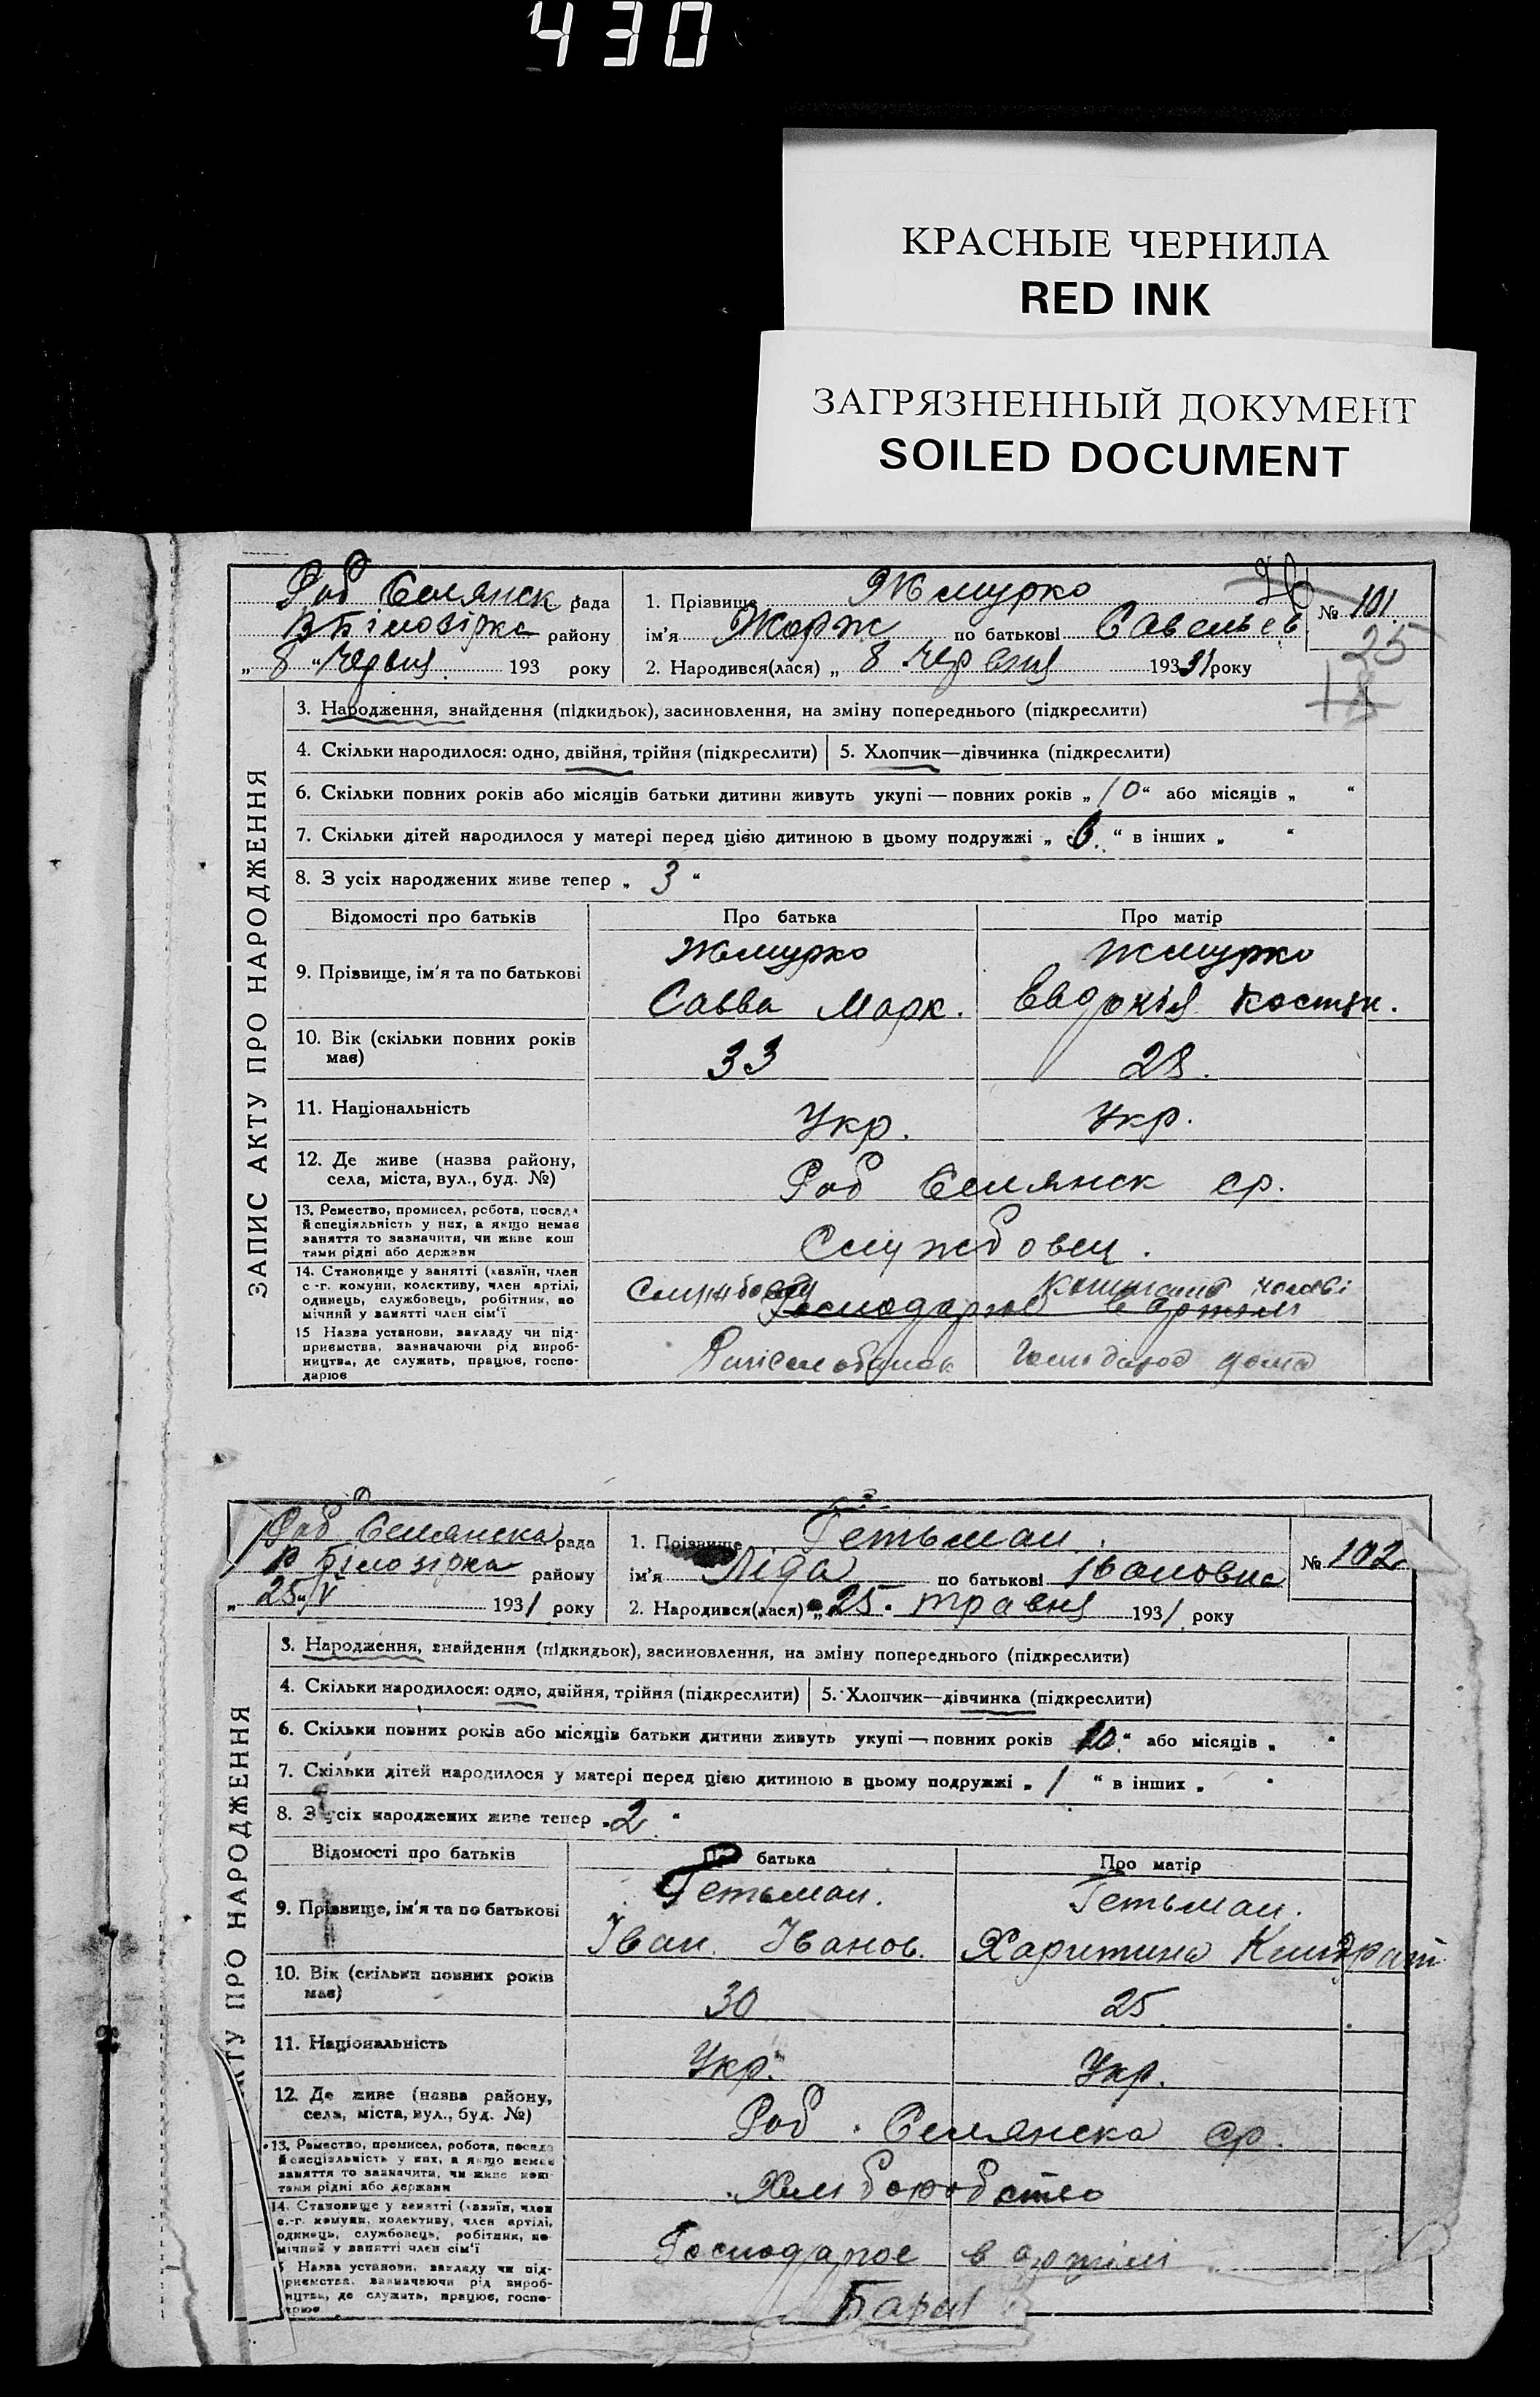 430
КРАСНЫЕ ЧЕРНИЛА
RED INK
ЗАГРЯЗНЕННЫЙ ДОКУМЕНТ
SOILED DOCUMENT
ЗАПИС АКТУ ПРО НАРОДЖЕННЯ
Роб Селянск рада
В Білозірка району
„ 8 “ червня 193 року
1. Прізвище Жмурко
ім'я Жорж по батькові Савельев
2. Народився(лася) „ 8 червня 1931 року
№ 101
25
18
3. Народження, знайдення (підкидьок), засиновлення, на зміну попереднього (підкреслити)
4. Скільки народилося: одно, двійня, трійня (підкреслити) 5. Хлопчик—дівчинка (підкреслити)
6. Скільки повних років або місяців батьки дитини живуть укупі — повних років „ 10 “ або місяців „ “
7. Скільки дітей народилося у матері перед цією дитиною в цьому подружжі „ “ в інших „ “
8. З усіх народжених живе тепер „ 3 “
Відомості про батьків Про батька Про матір
9. Прізвище, ім'я та по батькові
Жмурко Жмурко
Савва Марк. Евдокія Костян.
10. Вік (скільки повних років має) 33 28.
11. Національність Укр. Укр.
12. Де живе (назва району, села, міста, вул., буд. №) Роб Селянск ср.
13. Ремество, промисел, робота, посада
й спеціяльність у них, а якщо немає
заняття то зазначити, чи живе кош
тами рідні або держави
Службовец.
14. Становище у занятті (хазяїн, член
с.-г. комуни, колективу, член артілі,
одинець, службовець, робітник, по
мічний у занятті член сім'ї
Господарює в артілі
15 Назва установи, закладу чи під-
приємства, зазначаючи рід вироб-
ництва, де служить, працює, госпо-
дарює
дома
АКТУ ПРО НАРОДЖЕННЯ
Роб Селянска рада
В Білозірка району
„ 25 “ V 1931 року
1. Прізвище Гетьман
ім'я Ліда по батькові Івановна
2. Народився(лася) „ 25. травня 1931 року
№ 102
3. Народження, знайдення (підкидьок), засиновлення, на зміну попереднього (підкреслити)
4. Скільки народилося: одно, двійня, трійня (підкреслити) 5. Хлопчик—дівчинка (підкреслити)
6. Скільки повних років або місяців батьки дитини живуть укупі — повних років 10 “ або місяців „ “
7. Скільки дітей народилося у матері перед цією дитиною в цьому подружжі „ 1 “ в інших „ “
8. З усіх народжених живе тепер „ 2 “
Відомості про батьків Про батька Про матір
9. Прізвище, ім'я та по батькові
Гетьман. Гетьман.
Іван Іванов. Харитина Киндрат
10. Вік (скільки повних років має) 30 25
11. Національність Укр. Укр.
12. Де живе (назва району, села, міста, вул., буд. №) Роб. Селянска ср.
13. Ремество, промисел, робота, посада
й спеціяльність у них, а якщо немає
заняття то зазначити, чи живе кош-
тами рідні або держави
Хліборобство
14. Становище у занятті (хазяїн, член
с.-г. комуни, колективу, член артілі,
одинець, службовець, робітник, по
мічний у занятті член сім'ї
Господарює в артілі
Назва установи, закладу чи під-
приємства, зазначаючи рід вироб-
ництва, де служить, працює, госпо-
дарює